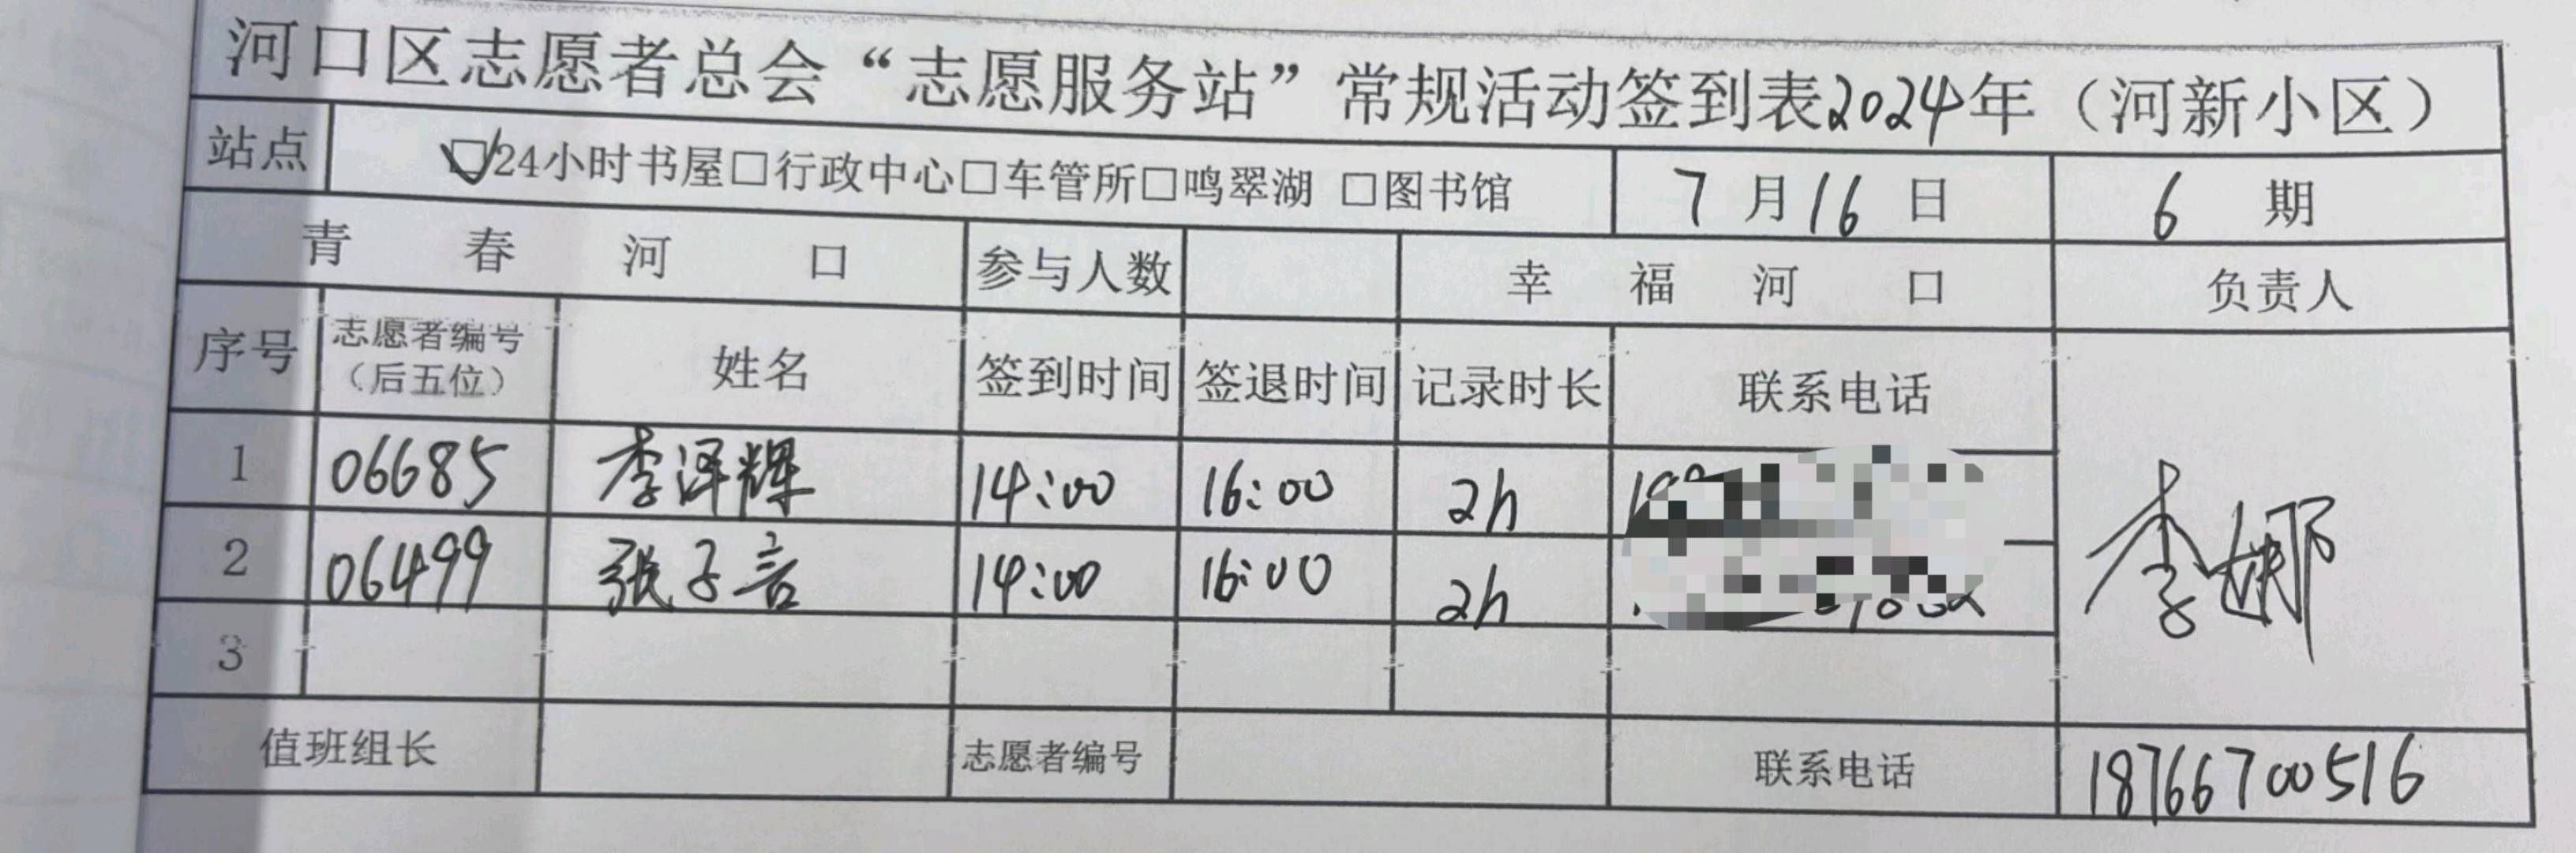 河口区志愿者总会“志愿服务站”常规活动签到表2024年（河新小区）
站点 ☑24小时书屋□行政中心□车管所□鸣翠湖 □图书馆 7月16日 6 期
青春河口 参与人数 幸福河口 负责人
序号 志愿者编号（后五位） 姓名 签到时间 签退时间 记录时长 联系电话
1 06685 李泽辉 14:00 16:00 2h
2 06499 张子言 14:00 16:00 2h
李娜
3
值班组长 志愿者编号 联系电话 18766700516